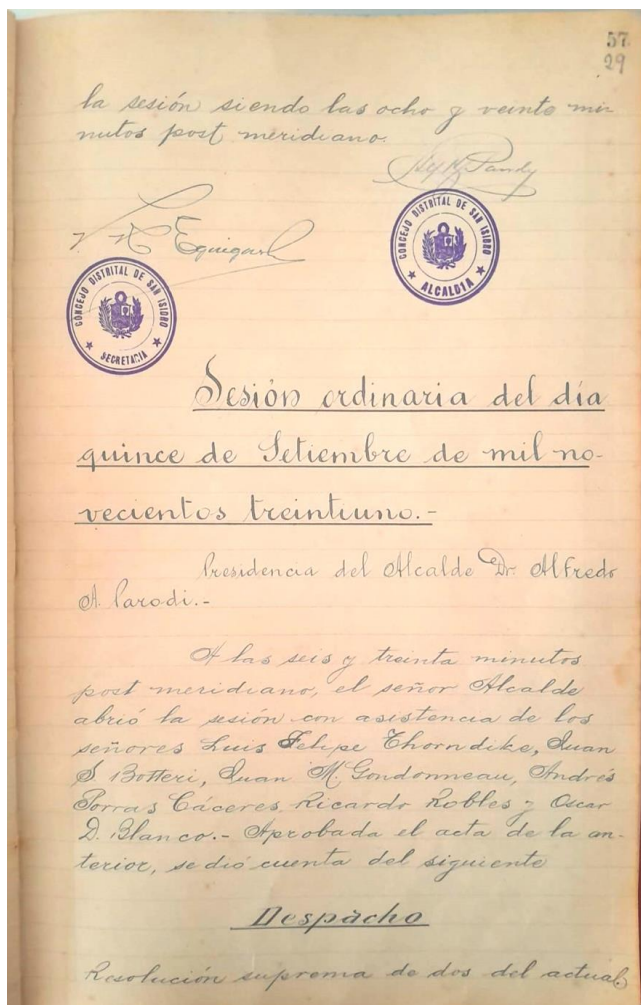 57
29
la sesión siendo las ocho y veinte mi-
nutos post meridiano.
CONCEJO DISTRITAL DE SAN ISIDRO
ALCALDIA
CONCEJO DISTRITAL DE SAN ISIDRO
SECRETARIA
Sesión ordinaria del día
quince de Setiembre de mil no-
vecientos treintiuno.-
Presidencia del Alcalde Dr. Alfredo
A. Parodi.-
A las seis y treinta minutos
post meridiano, el señor Alcalde
abrió la sesión con asistencia de los
señores Luis Felipe Thorndike, Juan
S Botteri, Juan M. Gondonneau, Andrés
Porras Cáceres, Ricardo Robles y Oscar
D. Blanco.- Aprobada el acta de la an-
terior, se dió cuenta del siguiente
Despacho
Resolución suprema de dos del actual,